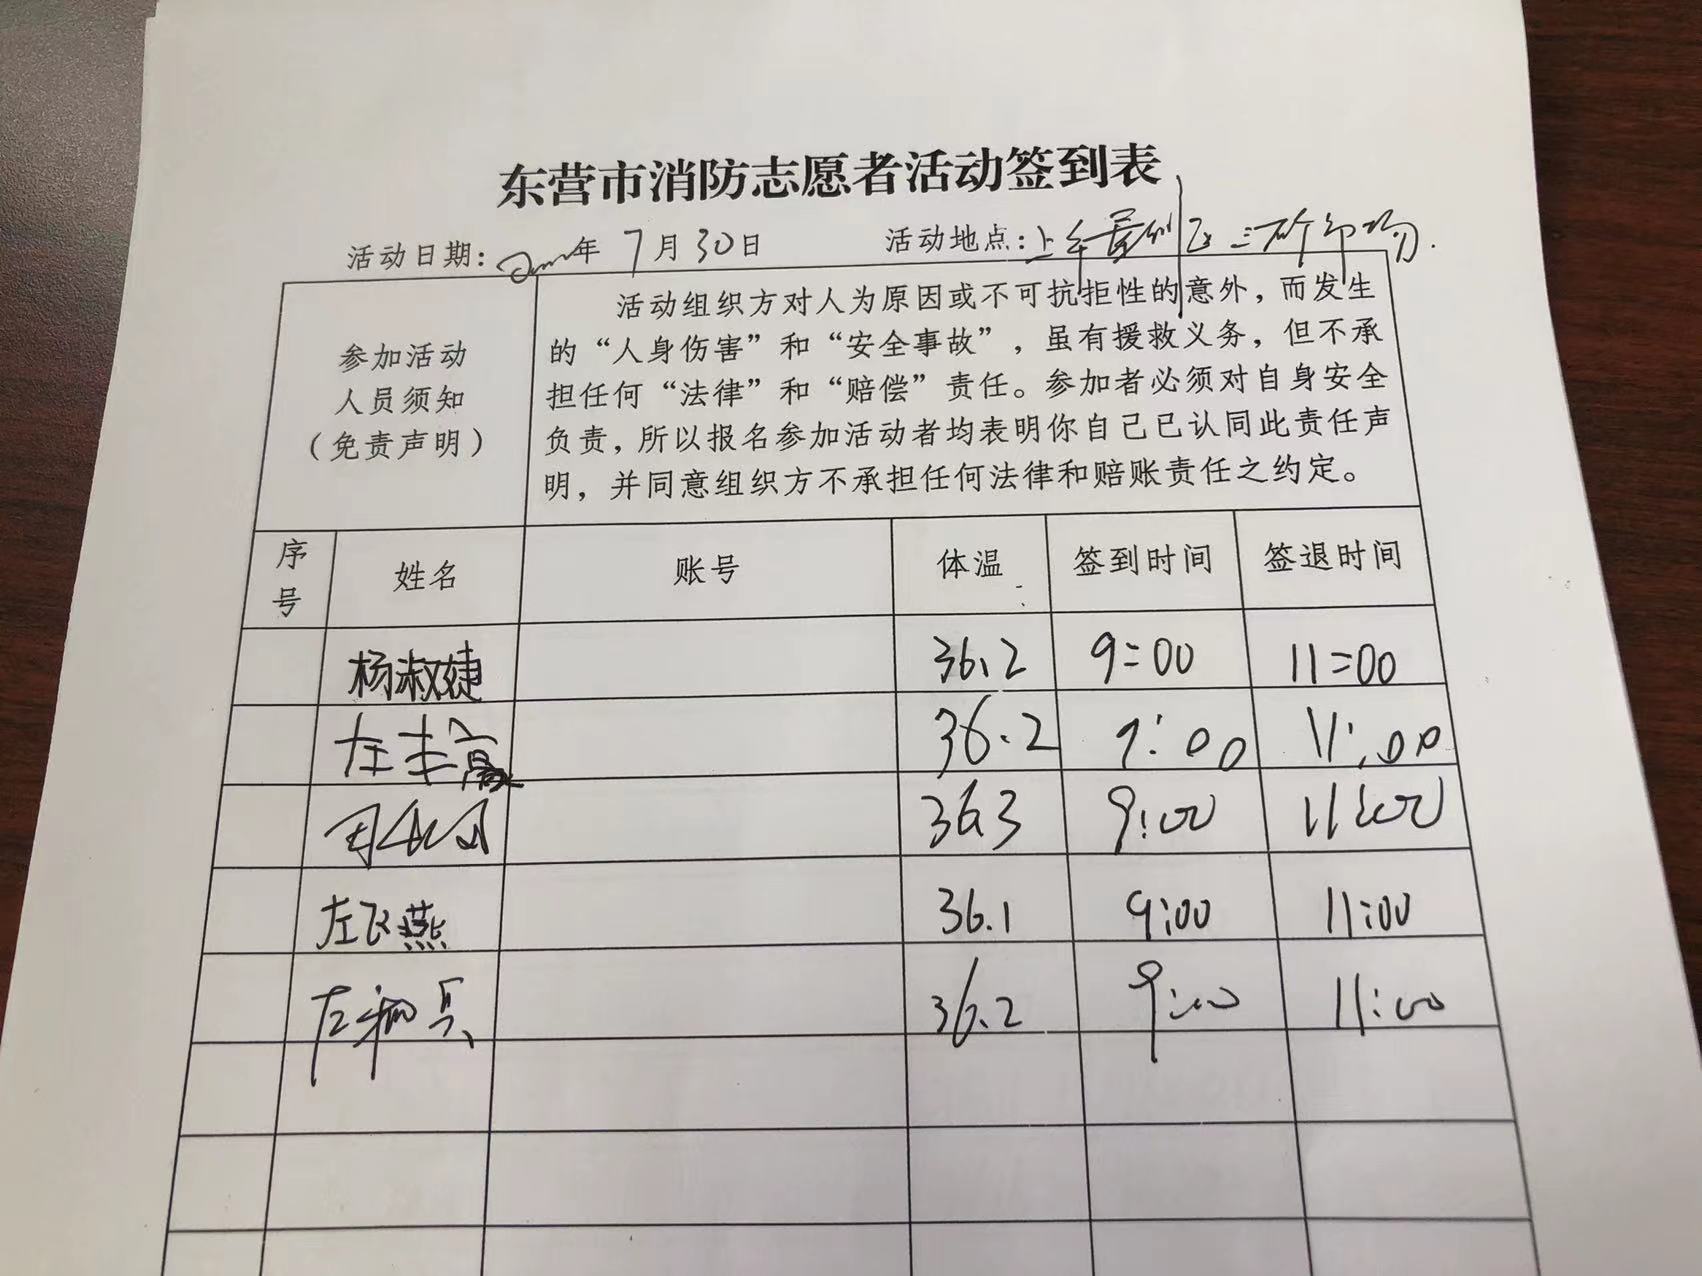 东营市消防志愿者活动签到表
活动日期: 年 7 月 30 日 活动地点:
参加活动
人员须知
（免责声明）
活动组织方对人为原因或不可抗拒性的意外，而发生
的“人身伤害”和“安全事故”，虽有援救义务，但不承
担任何“法律”和“赔偿”责任。参加者必须对自身安全
负责，所以报名参加活动者均表明你自己已认同此责任声
明，并同意组织方不承担任何法律和赔账责任之约定。
序号 姓名 账号 体温 签到时间 签退时间
杨淑婕 36.2 9:00 11:00
左丰高 36.2 9:00 11:00
36.3 9:00 11:00
左飞燕 36.1 9:00 11:00
左 兵 36.2 9:00 11:00